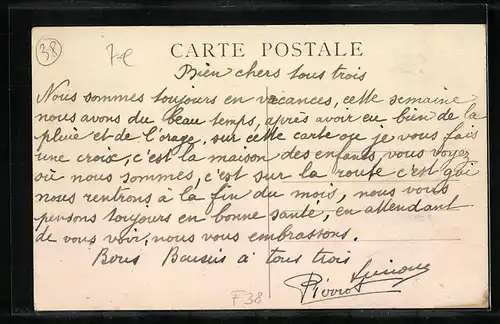 38
CARTE POSTALE
Bien chers tous trois
Nous sommes toujours en vacances, cette semaine
nous avons du beau temps, après avoir eu bien de la
pluie et de l'orage, sur cette carte ou je vous fais
une croise, c'est la maison des enfants, vous voyez
où nous sommes, c'est sur la route c'est qui
nous rentrons à la fin du mois, nous vous
pensons toujours en bonne santé, en attendant
de vous voir, nous vous embrassons.
Bons Baisers à tous trois
Pierrot
F38